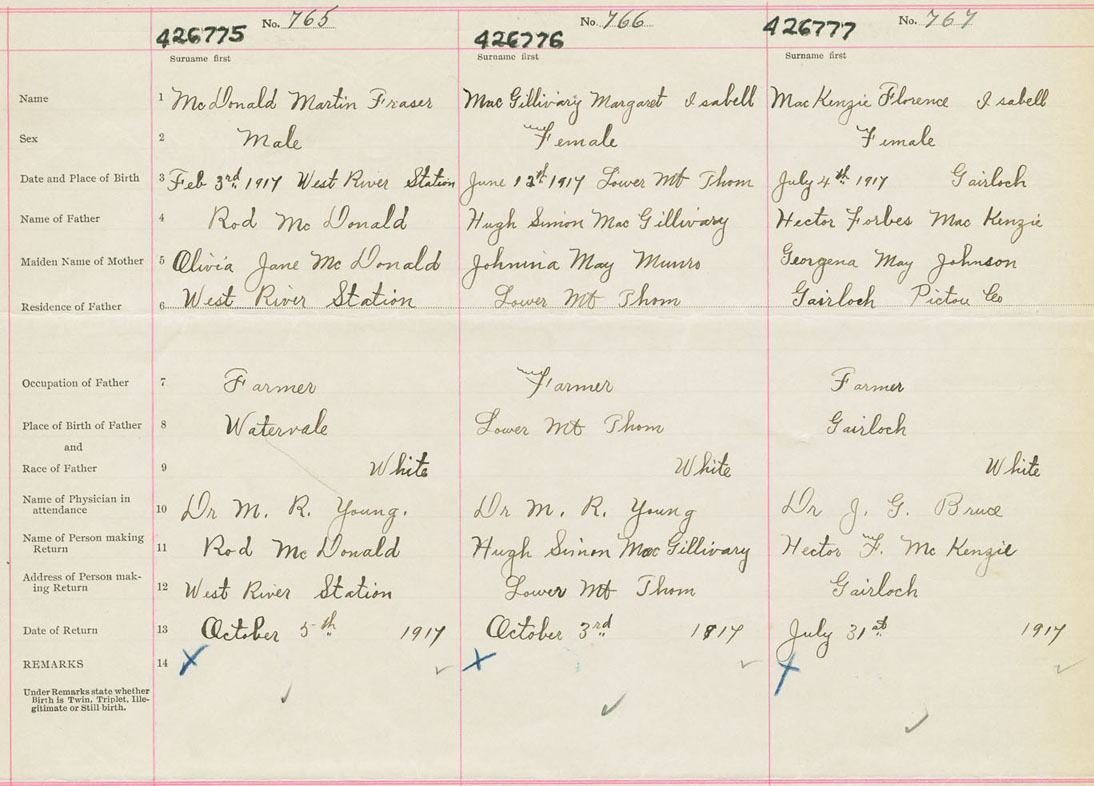 No. 765 No. 766 No. 767
426775 426776 426777
Surname first Surname first Surname first
Name 1 McDonald Martin Fraser MacGillivary Margaret Isabell MacKenzie Florence Isabell
Sex 2 Male Female Female
Date and Place of Birth 3 Feb 3rd 1917 West River Station June 12th 1917 Lower Mt Thom July 4th 1917 Gairloch
Name of Father 4 Rod McDonald Hugh Simon MacGillivary Hector Forbes MacKenzie
Maiden Name of Mother 5 Olivia Jane McDonald Johnina May Munro Georgena May Johnson
Residence of Father 6 West River Station Lower Mt Thom Gairloch Pictou Co
Occupation of Father 7 Farmer Farmer Farmer
Place of Birth of Father 8 Watervale Lower Mt Thom Gairloch
and
Race of Father 9 White White White
Name of Physician in
attendance 10 Dr M. R. Young. Dr M. R. Young Dr J. G. Bruce
Name of Person making
Return 11 Rod McDonald Hugh Simon MacGillivary Hector F. McKenzie
Address of Person mak-
ing Return 12 West River Station Lower Mt Thom Gairloch
Date of Return 13 October 5th 1917 October 3rd 1917 July 31st 1917
REMARKS 14
Under Remarks state whether
Birth is Twin, Triplet, Ille-
gitimate or Still-birth.